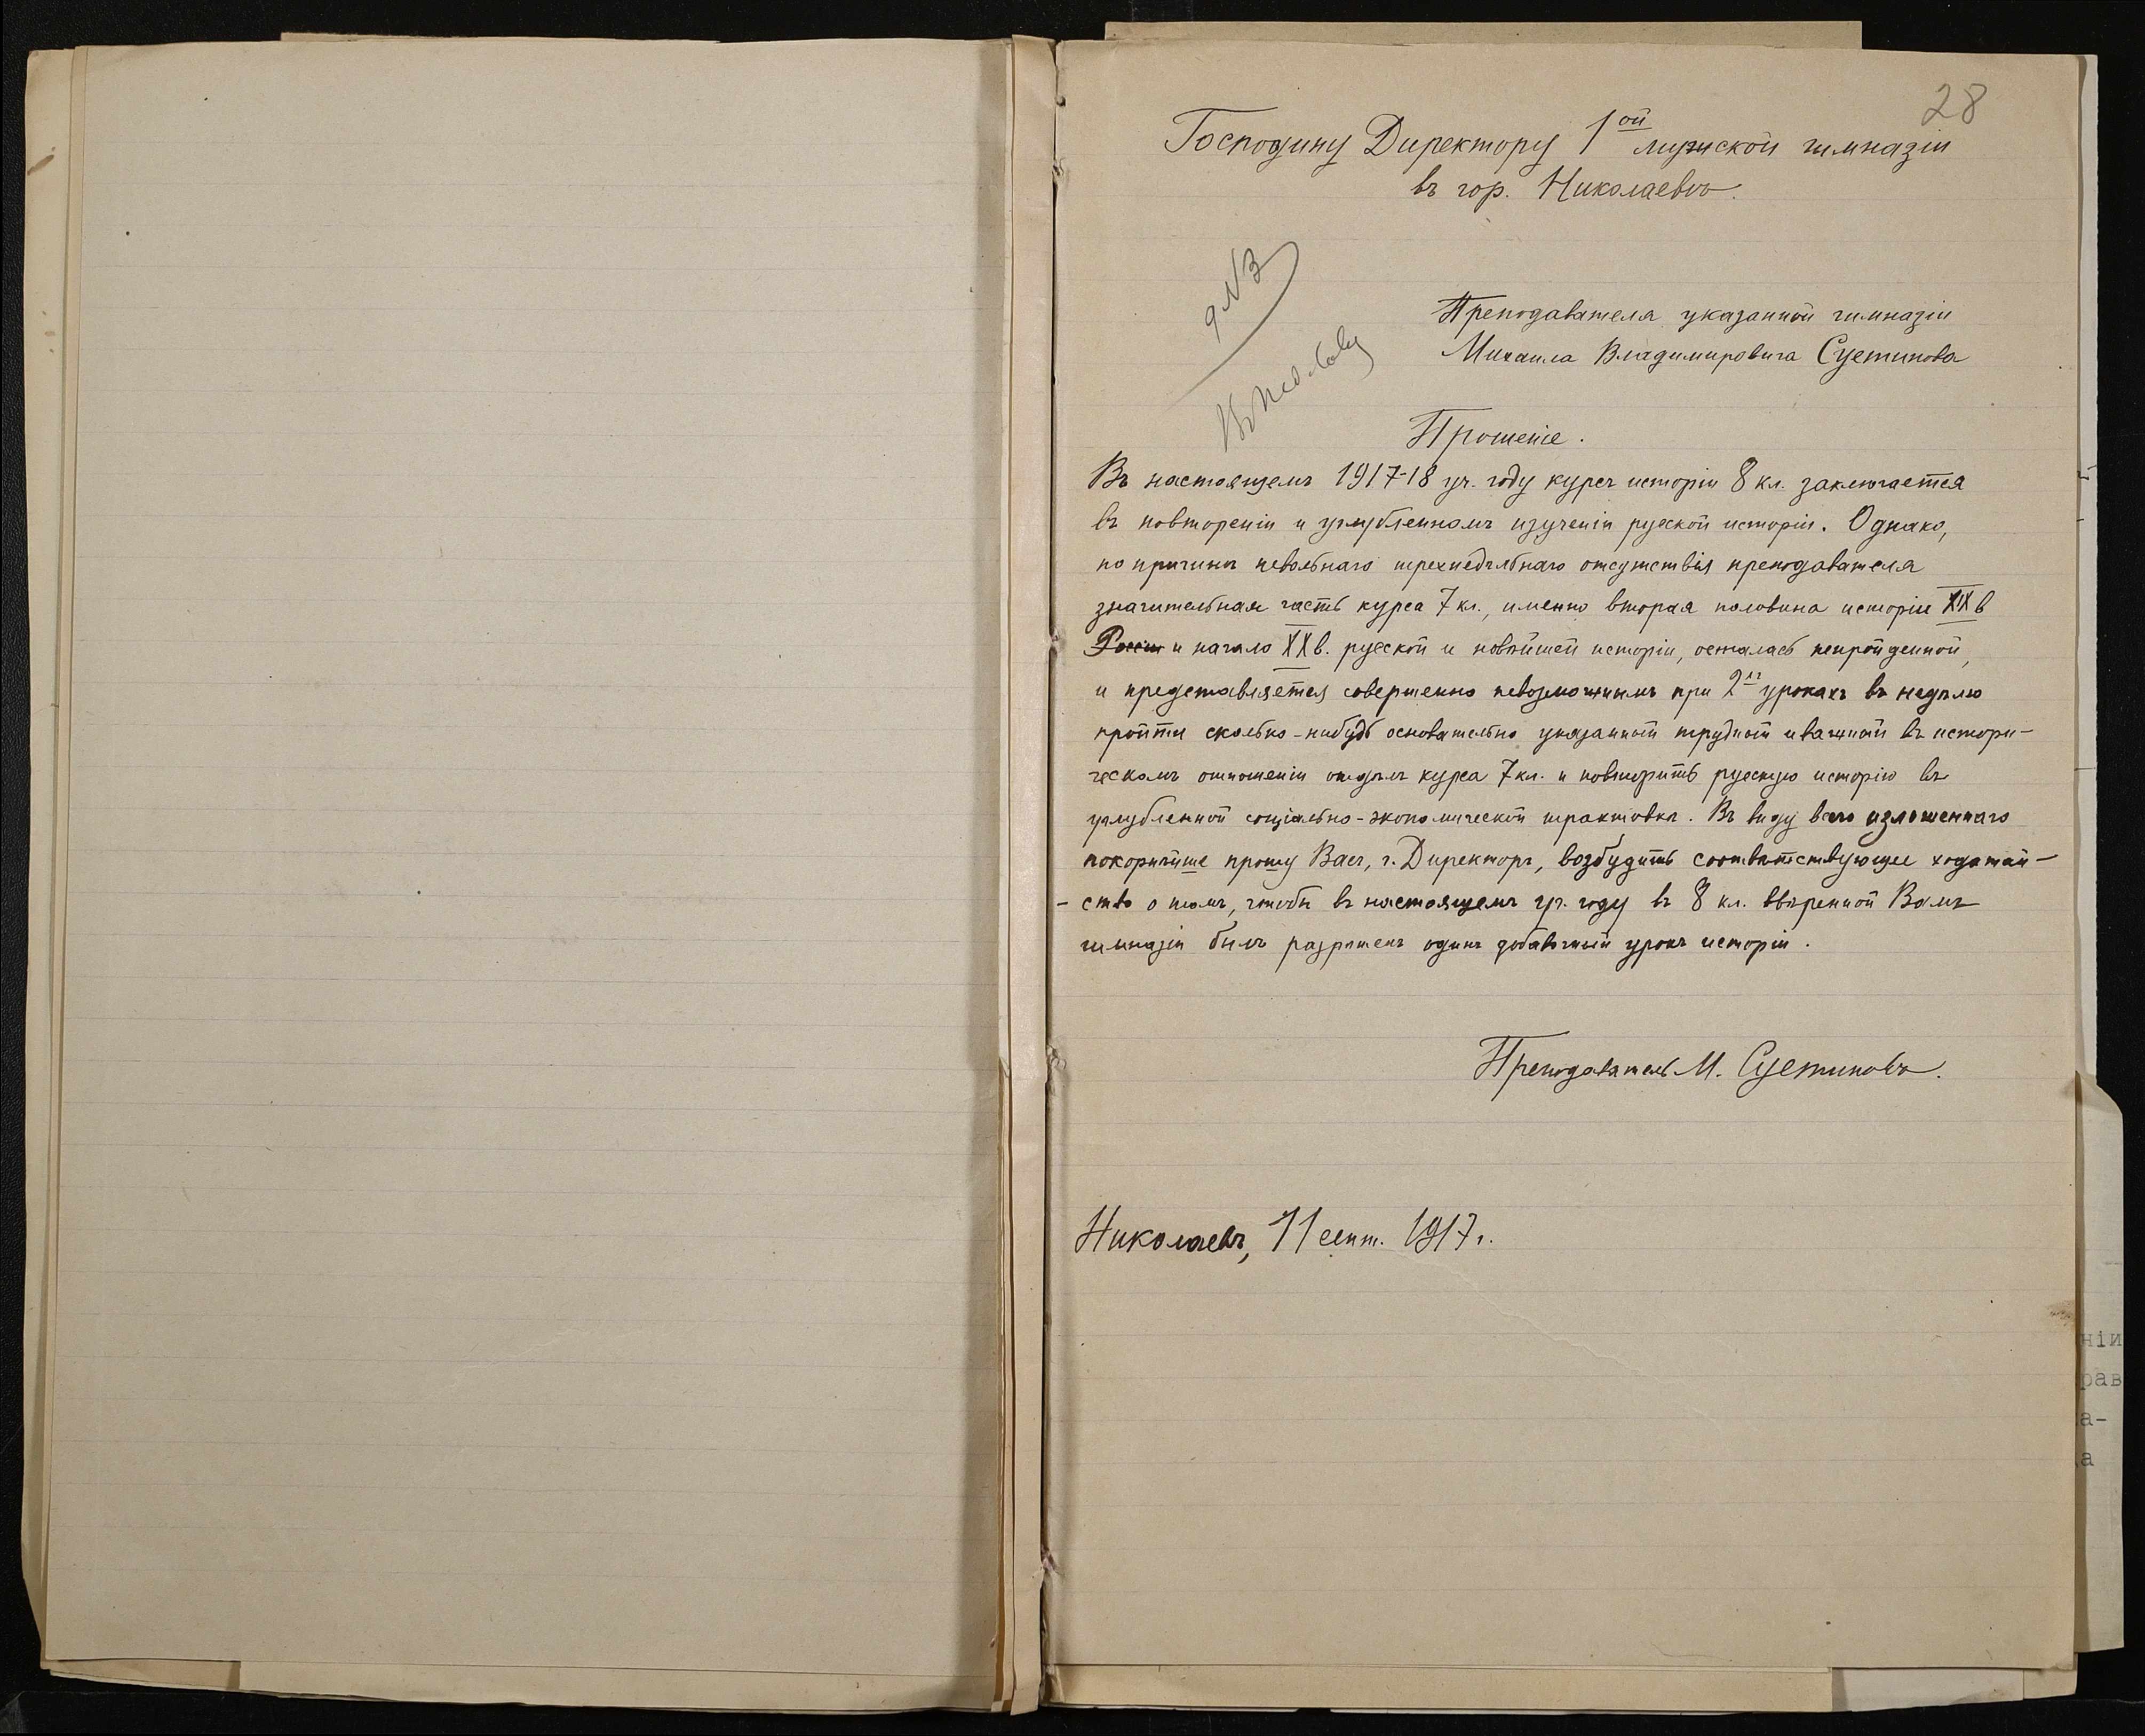 28
Господину Директору 1ой мужской гимназіи
въ гор. Николаевѣ.
д. №3
Преподавателя указанной гимназіи
Михаила Владимировича Суетинова
Прошеніе.
Въ настоящемъ 1917-18 уч. году курсъ исторіи 8 кл. заключается
въ повтореніи и углубленномъ изученіи русской исторіи. Однако,
по причинѣ невольнаго трехнедѣльнаго отсутствія преподавателя
значительная часть курса 7 кл., именно вторая половина исторіи XIX в
Россіи и начало XX в. русской и новѣйшей исторіи, осталась непройденной,
и представляется совершенно невозможнымъ при 2хъ урокахъ въ недѣлю
пройти сколько-нибудь основательно указанный трудный и важный въ истори-
ческомъ отношеніи отдѣлъ курса 7 кл. и повторить русскую исторію въ
углубленной соціально-экономической трактовкѣ. Въ виду всего изложеннаго
покорнѣйше прошу Васъ, г. Директоръ, возбудить соотвѣтствующее ходатай-
-ство о томъ, чтобы въ настоящемъ уч. году въ 8 кл. ввѣренной Вамъ
гимназіи былъ разрѣшенъ одинъ добавочный урокъ исторіи.
Преподаватель М. Суетиновъ.
Николаевъ, 11 сент. 1917 г.
ніи
рав
а-
а